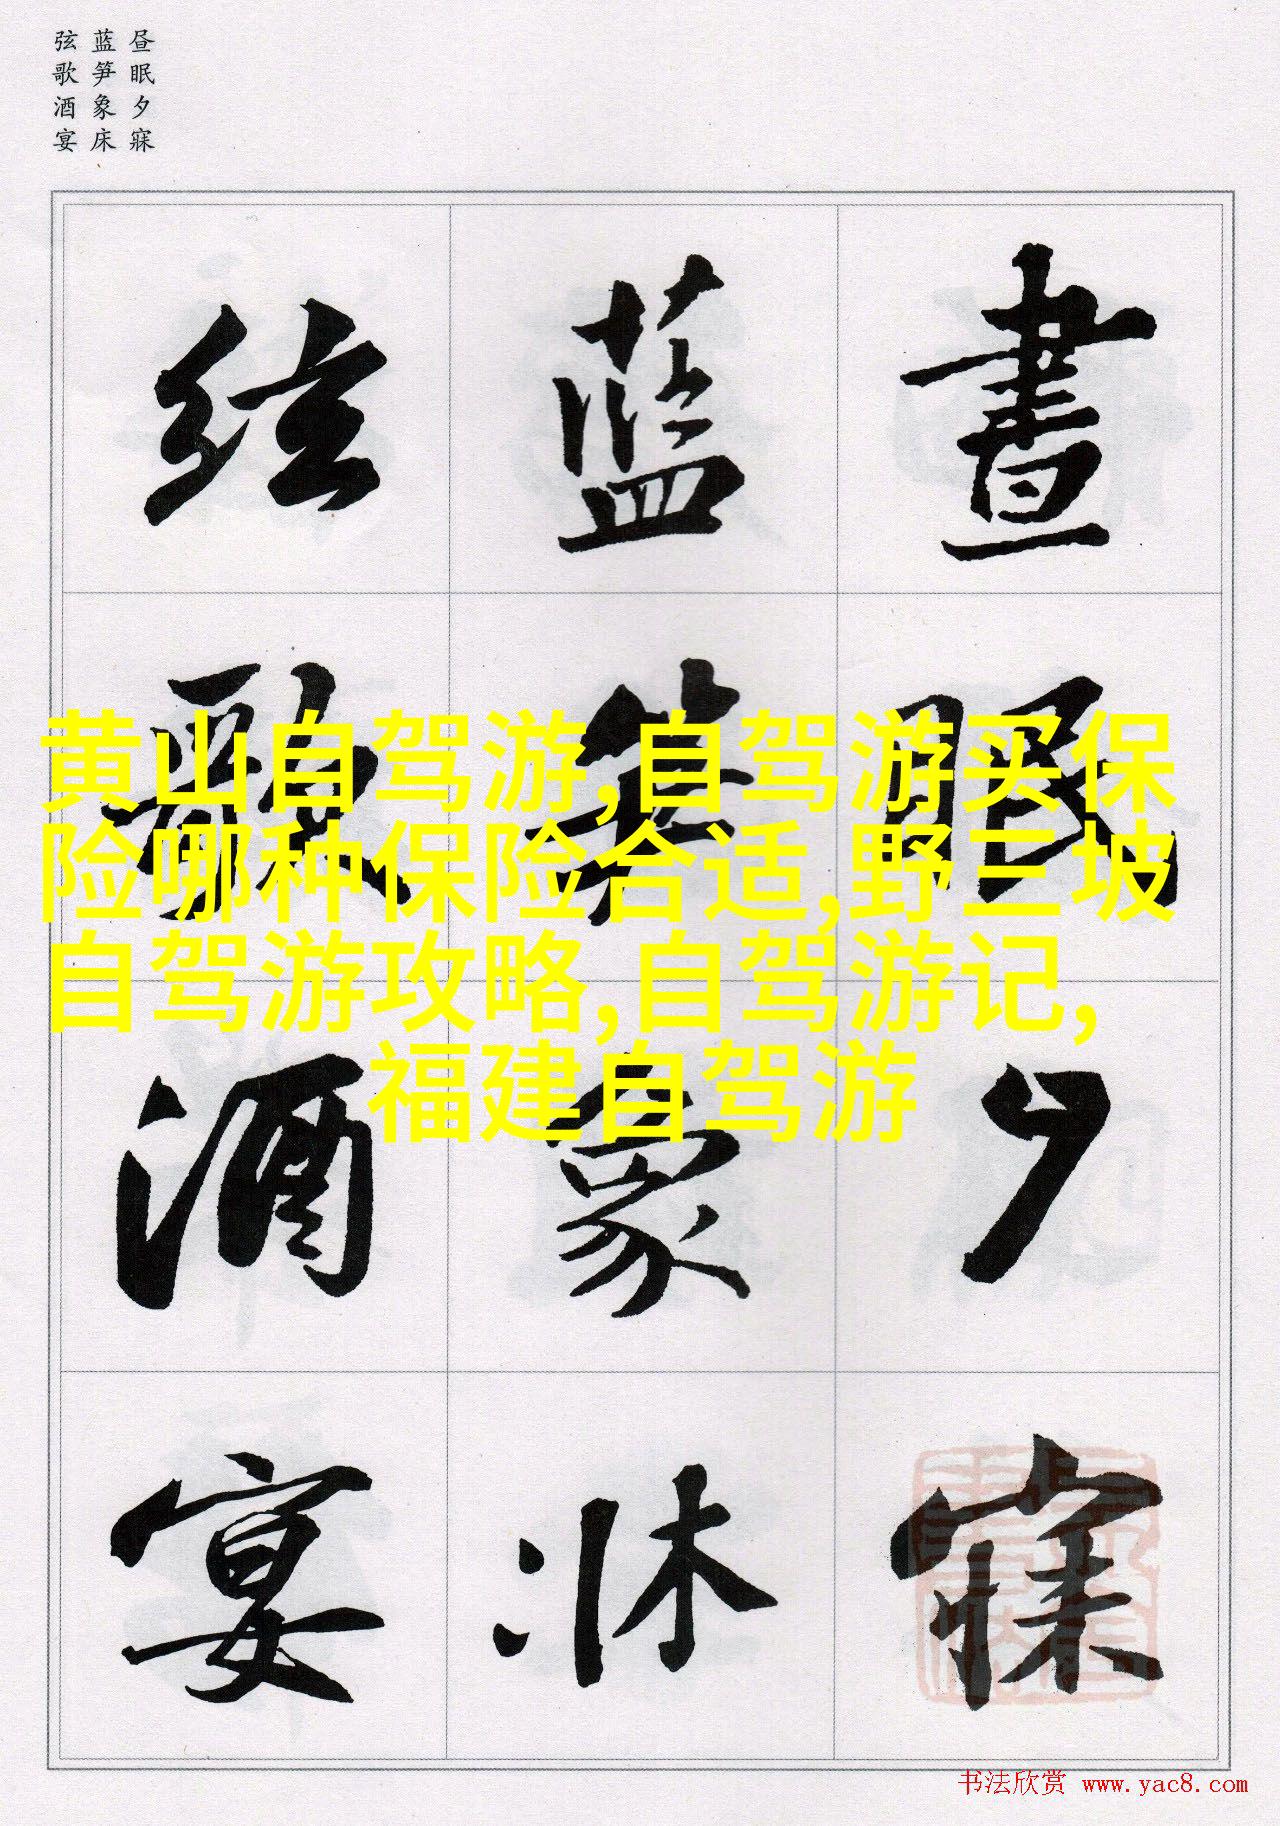 昼眠夕寐
蓝笋象床
弦歌酒宴
晝眠夕寐
蓝笋象床
弦歌酒宴
黄山自驾游,自驾游买保
险哪种保险合适,野三坡
自驾游攻略,自驾游记,
福建自驾游
书法欣赏 www.yac8.com